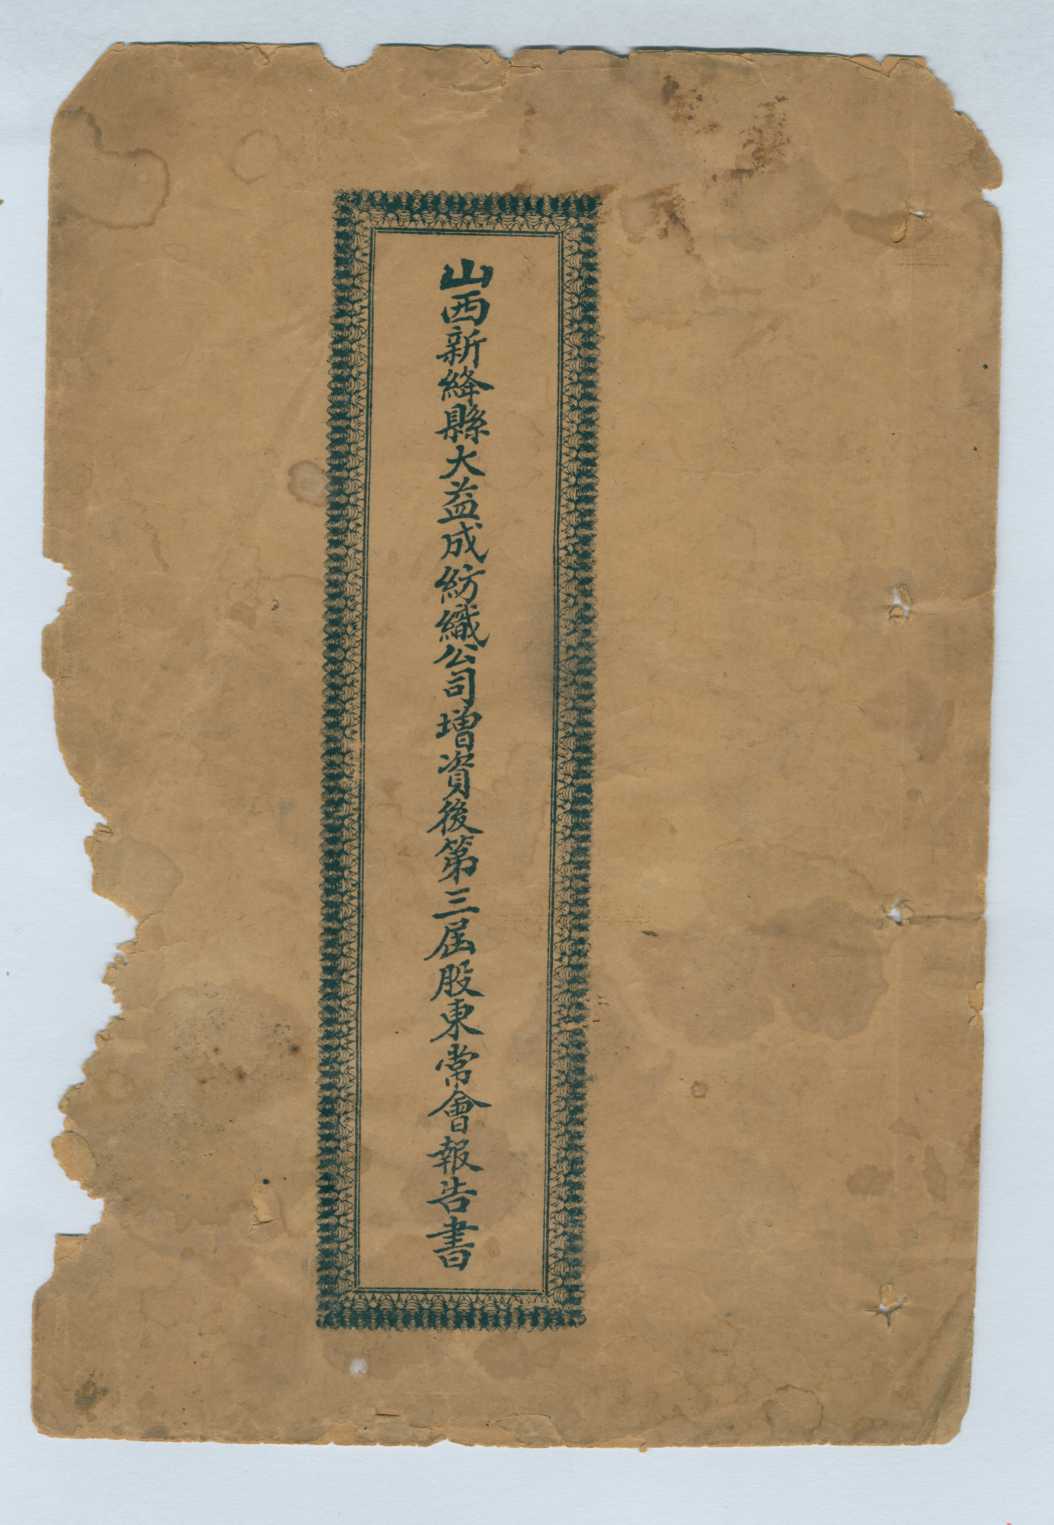 山西新絳縣大益成紡織公司增資後第三屆股東常會報告書